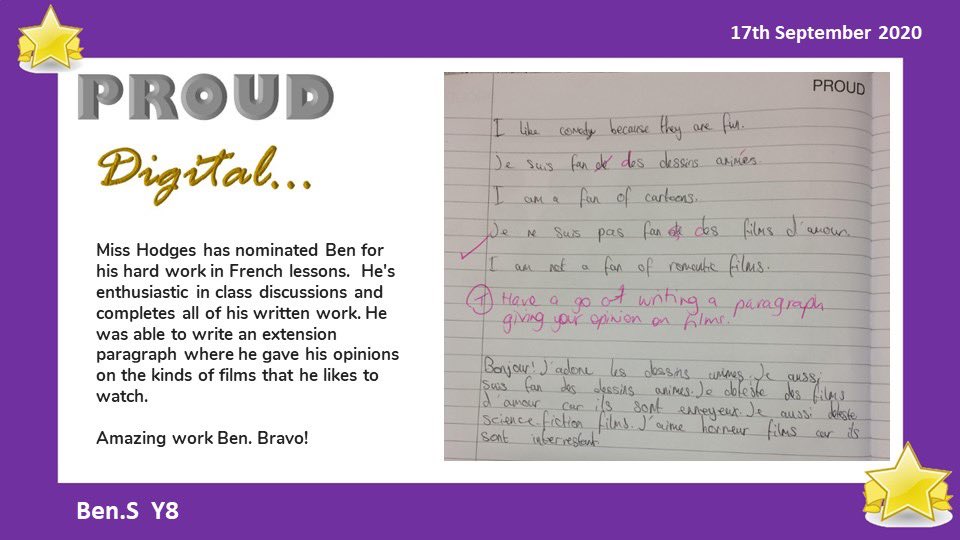 17th September 2020
PROUD
Digital...
Miss Hodges has nominated Ben for
his hard work in French lessons. He's
enthusiastic in class discussions and
completes all of his written work. He
was able to write an extension
paragraph where he gave his opinions
on the kinds of films that he likes to
watch.
Amazing work Ben. Bravo!
PROUD
I like comedy because they are fun.
Je suis fan des dessins animés.
I am a fan of cartoons.
Je ne suis pas fan des films d'amour.
I am not a fan of romantic films.
T Have a go at writing a paragraph
giving your opinion on films.
Bonjour! J'adore les dessins animes. Je aussi
suis fan des dessins animes. Je deteste des films
d'amour car ils sont ennuyeux. Je aussi deteste
science-fiction films. J'aime horreur films car ils
sont interrestant.
Ben.S Y8